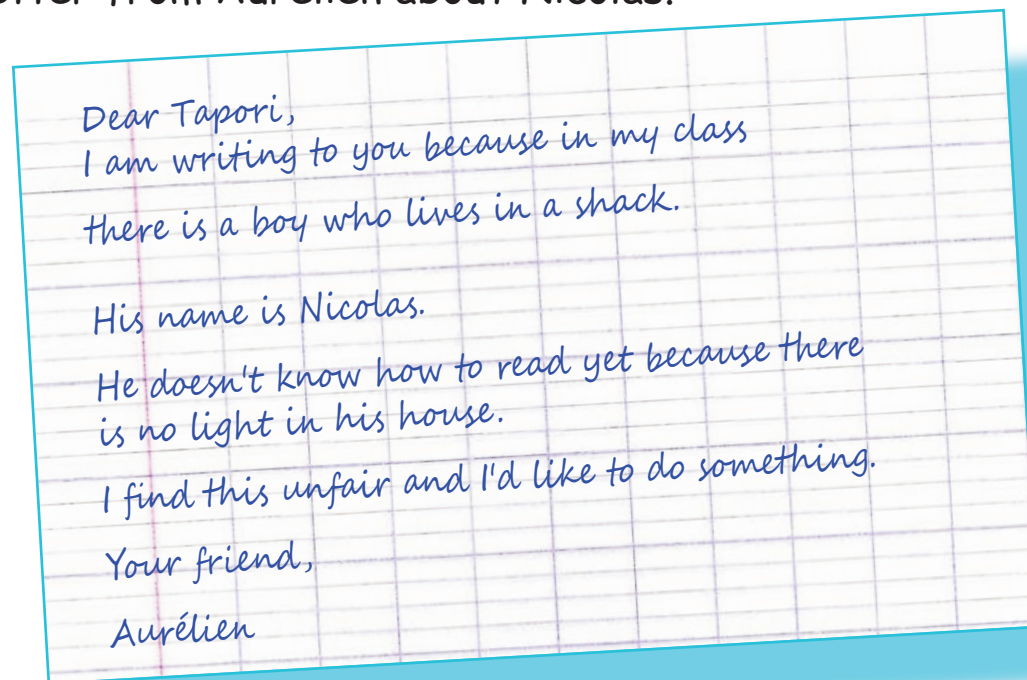 from Aurélien about Nicolas.
Dear Tapori,
I am writing to you because in my class
there is a boy who lives in a shack.
His name is Nicolas.
He doesn't know how to read yet because there
is no light in his house.
I find this unfair and I'd like to do something.
Your friend,
Aurélien